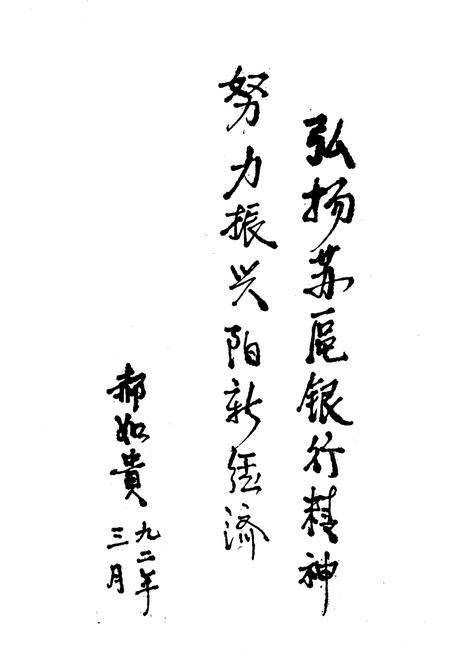 弘扬苏区银行精神
努力振兴阳新经济
郝如贵
九二年
三月